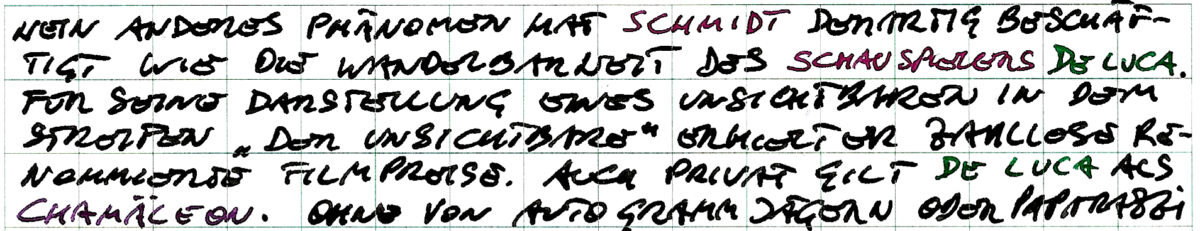 KEIN ANDERES PHÄNOMEN HAT SCHMIDT DERARTIG BESCHÄF-
TIGT WIE DIE WANDELBARKEIT DES SCHAUSPIELERS DE LUCA.
FÜR SEINE DARSTELLUNG EINES UNSICHTBAREN IN DEM
STREIFEN „DER UNSICHTBARE" ERHIELT ER ZAHLLOSE RE-
NOMMIERTE FILMPREISE. AUCH PRIVAT GILT DE LUCA ALS
CHAMÄLEON. OHNE VON AUTOGRAMMJÄGERN ODER PAPARAZZI